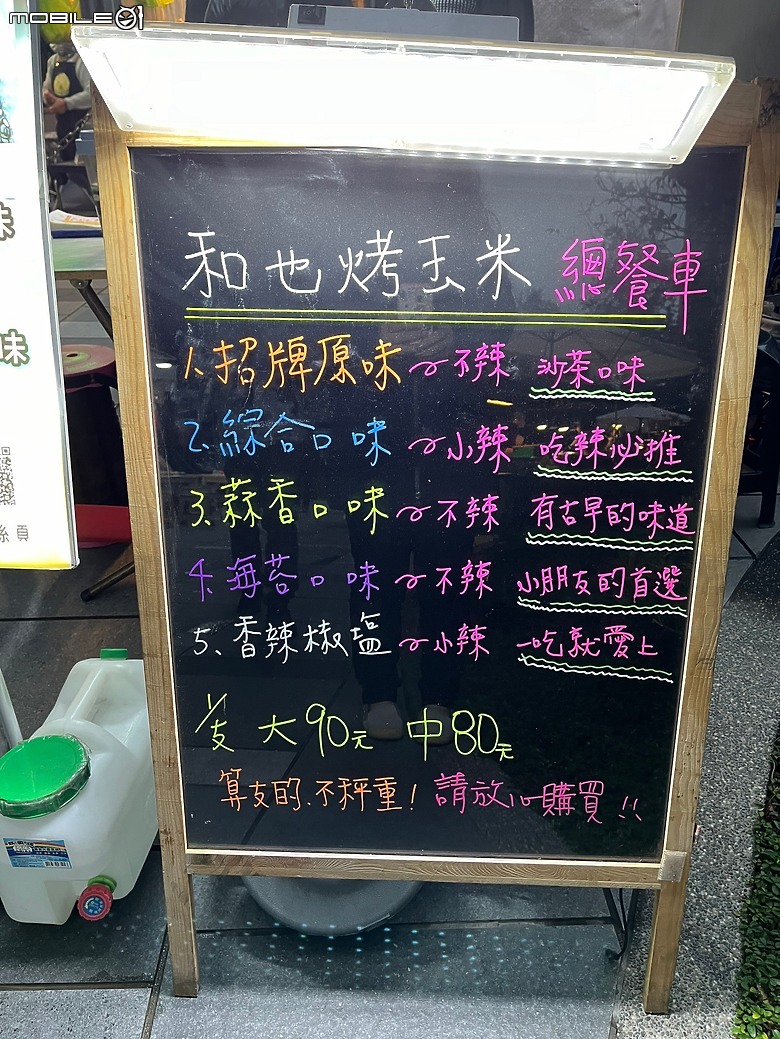 MOBILE01
和也烤玉米 總餐車
1.招牌原味~不辣 沙茶口味
2.綜合口味~小辣 吃辣必推
3.蒜香口味~不辣 有古早的味道
4.海苔口味~不辣 小朋友的首選
5.香辣椒塩~小辣 一吃就愛上
1/支 大90元 中80元
算支的.不秤重! 請放心購買!!
味
味
絲頁